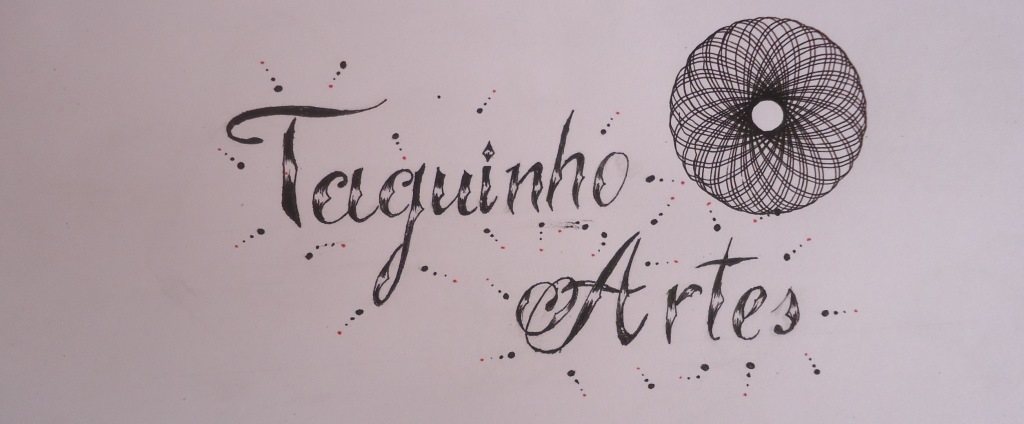 Taguinho
Artes